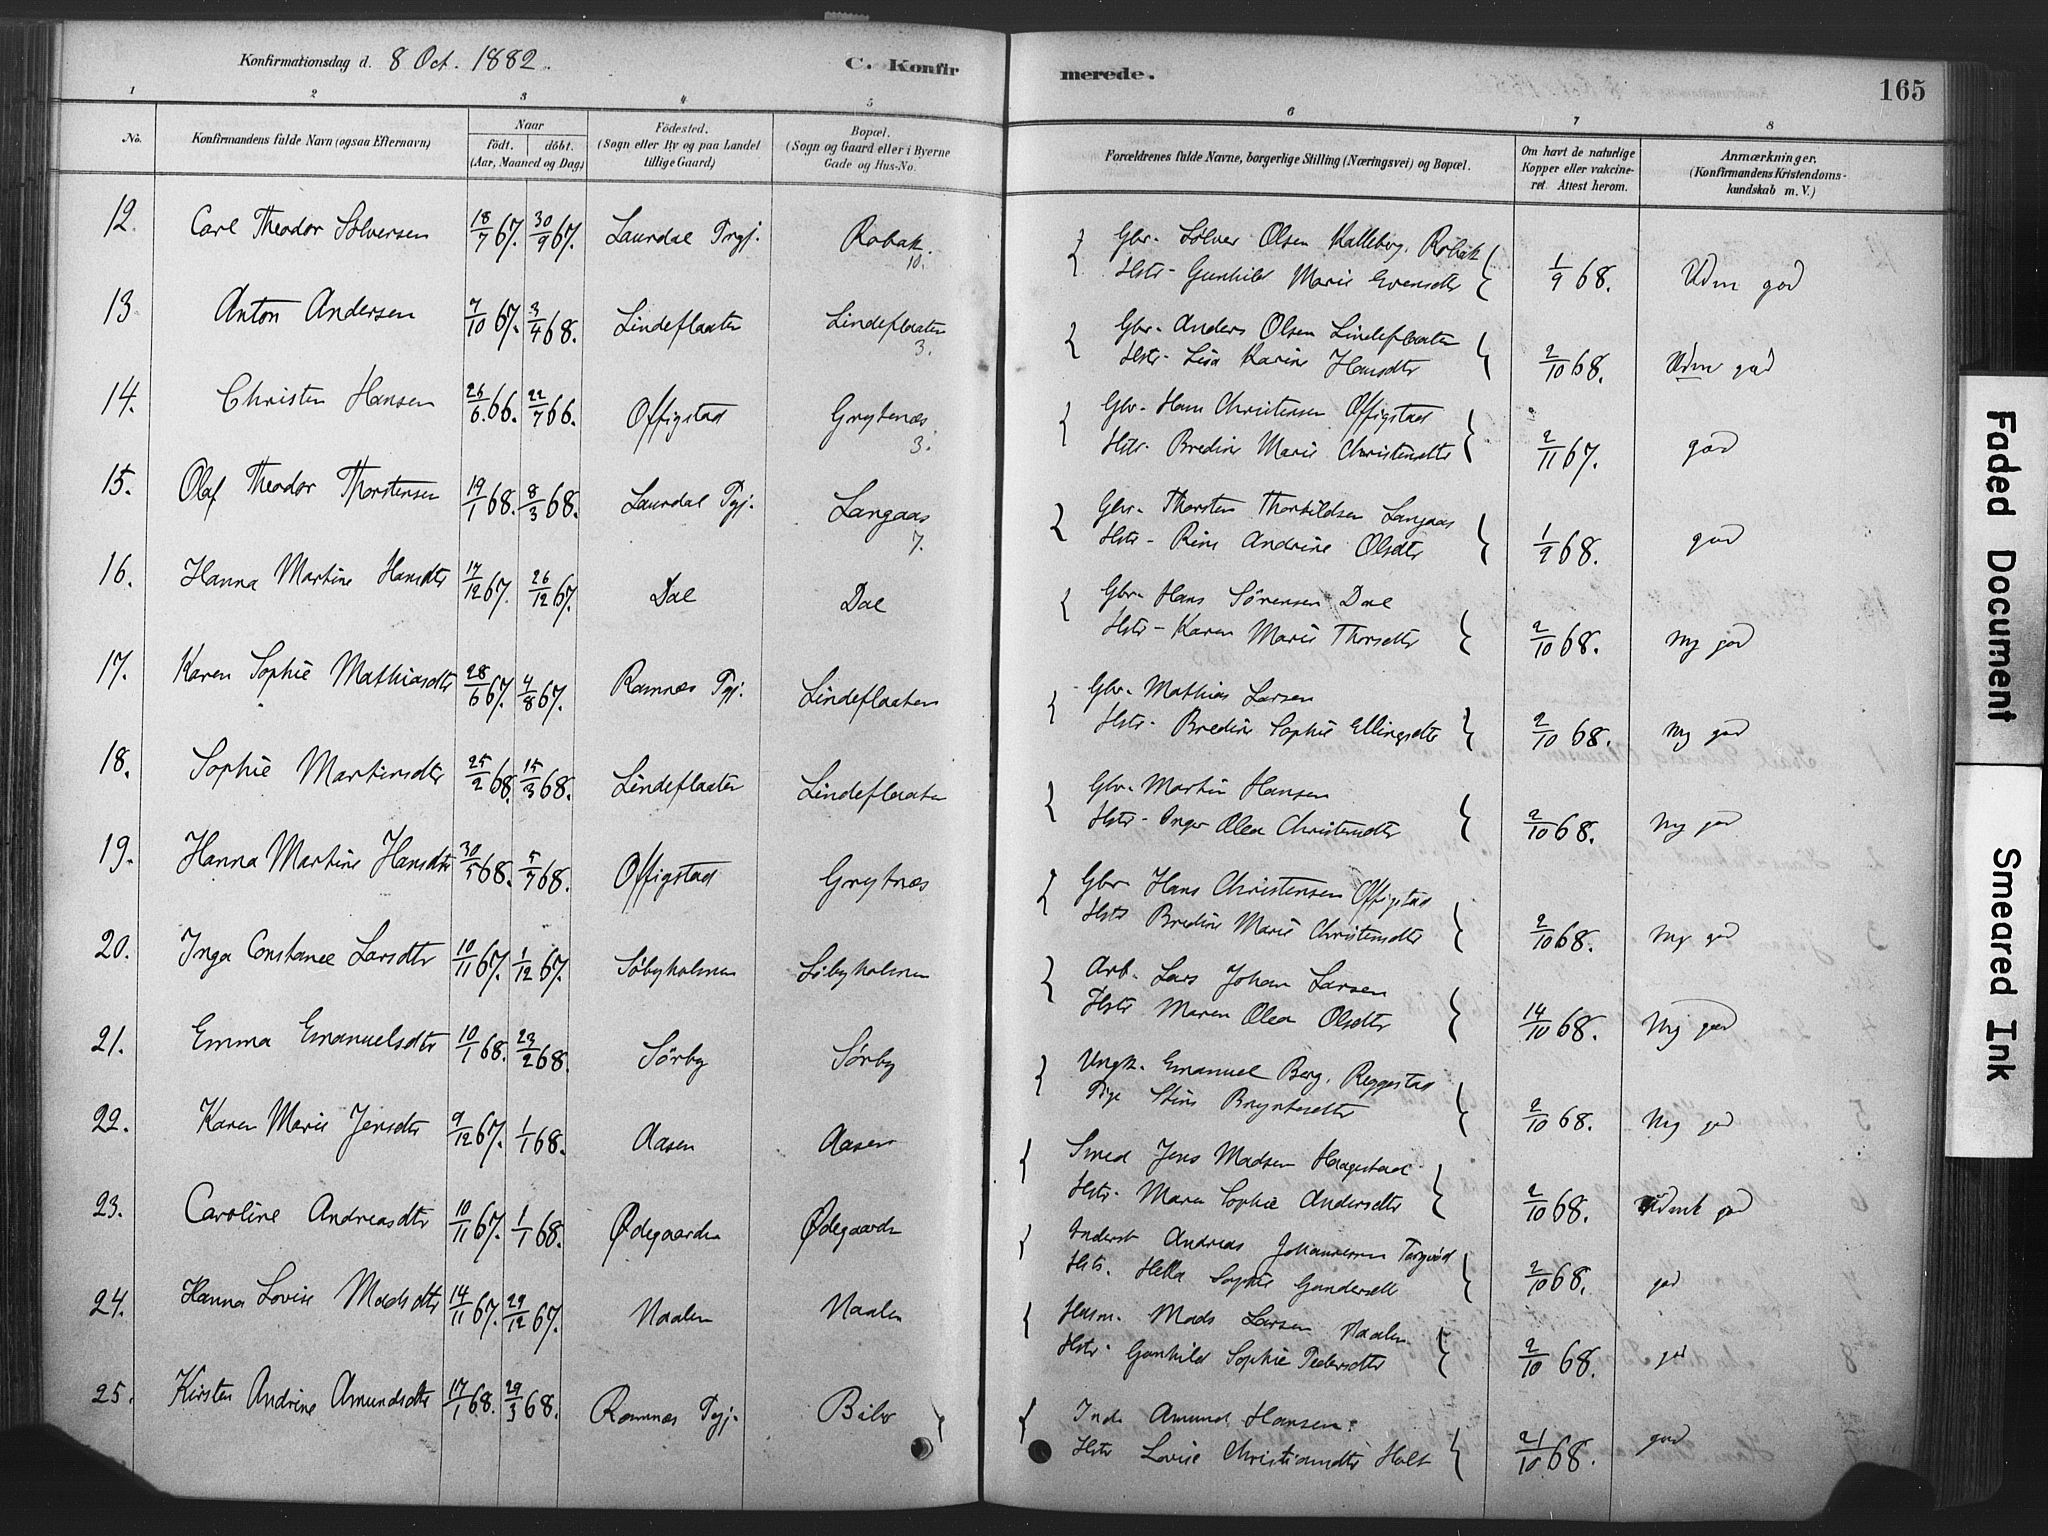 Konfirmationsdag d. 8 Oct. 1882.
C. Konfirmerede.
165
1 2 3 4 5 6 7 8
No.
Konfirmandens fulde Navn (ogsaa Efternavn)
Naar
födt. döbt.
(Aar, Maaned og Dag)
Födested.
(Sogn eller By og paa Landet
tillige Gaard)
Bopæl.
(Sogn og Gaard eller i Byerne
Gade og Hus-No.
Forældrenes fulde Navne, borgerlige Stilling (Næringsvei) og Bopæl.
Om havt de naturlige
Kopper eller vakcine-
ret. Attest herom.
Anmærkninger.
(Konfirmandens Kristendoms-
kundskab m. V.)
12. Carl Theodor Sølversen 18/7 67. 30/9 67. Laurdal Prgj. Robak. 10.
Gbr. Sølver Olsen Kalleberg, Robak
Hstr. Gunhild Marie Evensdtr 1/9 68. Udm god
13. Anton Andersen 7/10 67. 3/4 68. Lindeflaaten Lindeflaaten 3.
Gbr. Anders Olsen Lindeflaaten
Hstr. Lisa Karine Hansdtr 2/10 68. Udm god
14. Christen Hansen 26/6 66. 22/7 66. Offigstad Grytenæs. 3.
Gbr. Hans Christensen Offigstad
Hstr. Bredine Marie Christensdtr 2/11 67. god
15. Olaf Theodor Thorstensen 19/1 68. 8/3 68. Laurdal Pgj. Langaas 7.
Gbr. Thorsten Thorkildsen Langaas
Hstr. Rine Andrine Olsdtr 1/9 68. god
16. Hanna Martine Hansdtr 17/12 67. 26/12 67. Dal Dal
Gbr. Hans Sörensen Dal
Hstr. Karen Marie Thorsdtr 2/10 68. Mg god
17. Karen Sophie Mathiasdtr 28/6 67. 4/8 67. Ramnæs Pgj. Lindeflaaten
Gbr. Mathias Larsen
Hstr. Bredine Sophie Ellingsdtr 2/10 68. Mg god
18. Sophie Martinsdtr 25/2 68. 15/3 68. Lindeflaaten Lindeflaaten
Gbr. Martin Hansen
Hstr. Inger Olea Christensdtr 2/10 68. Mg god
19. Hanna Martine Hansdtr 30/5 68. 5/7 68. Offigstad Grytnæs
Gbr. Hans Christensen Offigstad
Hstr Bredine Marie Christensdtr 2/10 68. Mg god
20. Inga Constance Larsdtr 10/11 67. 1/12 67. Söbyholmen Söbyholmen
Arb. Lars Johan Larsen
Hstr Maren Olea Olsdtr 14/10 68. Mg god
21. Emma Emanuelsdtr 10/1 68. 23/2 68. Sörby Sörby
Ungk. Emanuel Berg, Reggestad
Pige Stine Bryntesdtr 2/10 68. Mg god
22. Karen Marie Jensdtr 9/12 67. 1/1 68. Aasen Aasen
Smed Jens Madsen Haagestad
Hstr. Maren Sophie Andersdtr 2/10 68. god
23. Caroline Andreasdtr 10/11 67. 1/1 68. Ødegaarden Ødegaarden
Inderst Andreas Johannesen
Hstr. Sophie Gundersdtr 2/10 68. god
24. Hanna Lovise Madsdtr 14/11 67. 29/12 67. Naalen Naalen
Husm. Mads Larsen Naalen
Hstr. Gunhild Sophie Pedersdtr 2/10 68. god
25. Kirsten Andrine Amundsdtr 17/1 68. 29/3 68. Ramnæs Pgj. Bibo
Ind. Amund Hansen.
Hstr Lovise Christiansdtr Holt 21/10 68. god
Faded Document
Smeared Ink